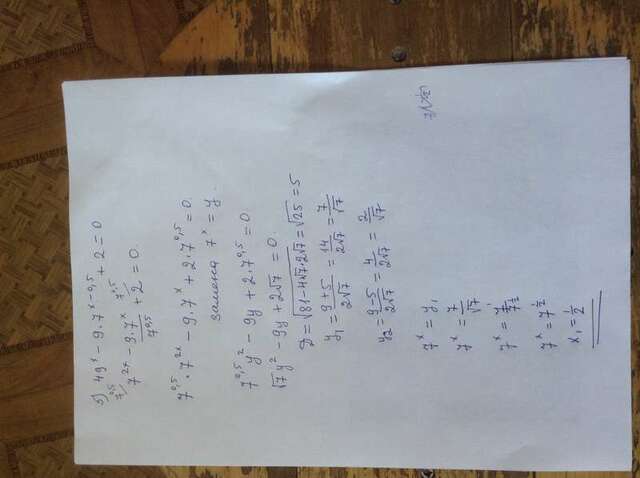 5) 49^x - 9·7^(x-0,5) + 2 = 0
7^0,5/ 7^(2x) - 9·7^x/7^0,5 + 7^0,5/ 2 = 0.
7^0,5 · 7^(2x) - 9·7^x + 2·7^0,5 = 0.
замена 7^x = y.
7^0,5 y² - 9y + 2·7^0,5 = 0
√7y² - 9y + 2√7 = 0.
D = √(81-4√7·2√7) = √25 = 5
y₁ = (9+5)/(2√7) = 14/(2√7) = 7/√7
y₂ = (9-5)/(2√7) = 4/(2√7) = 2/√7
7^x = y₁
7^x = 7/√7
7^x = 7^1/7^(1/2)
7^x = 7^(1/2)
x₁ = 1/2